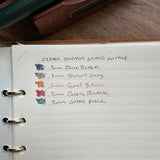 ZEBRA SARASA GRAND VINTAGE
.5mm BLUE BLACK
.5mm BROWN GRAY
.5mm CAMEL YELLOW
.5mm CASSIS BLACK
.5mm GREEN BLACK